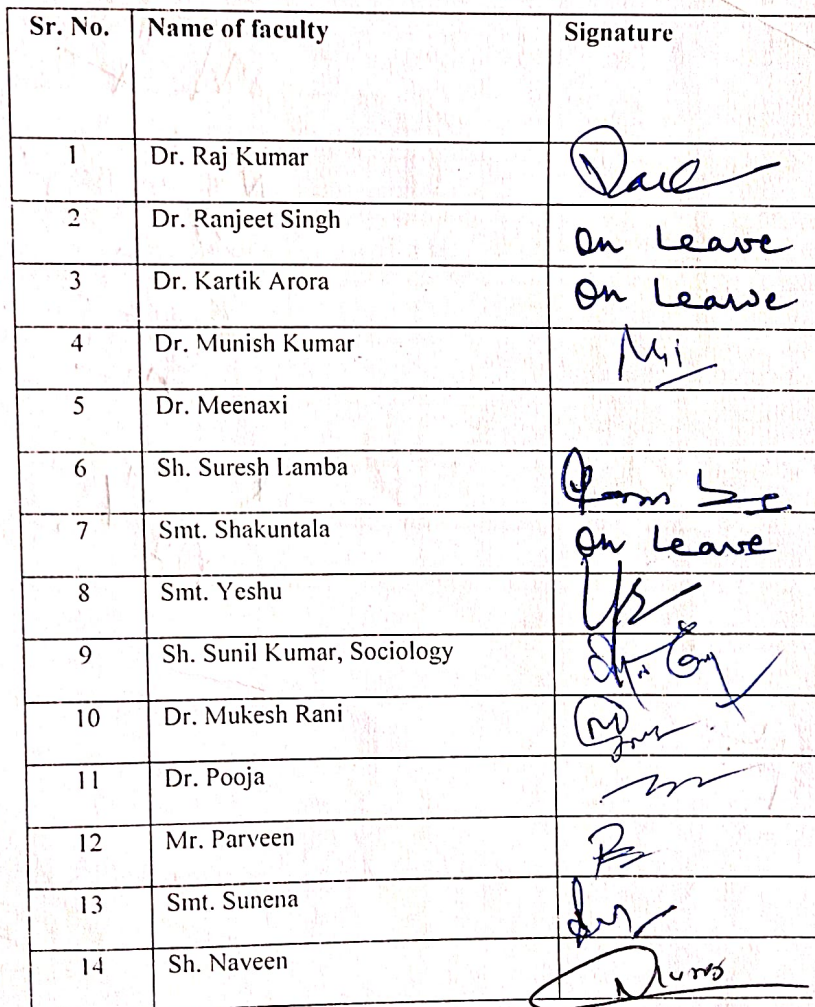 Sr. No. Name of faculty Signature
1 Dr. Raj Kumar
2 Dr. Ranjeet Singh On Leave
3 Dr. Kartik Arora On Leave
4 Dr. Munish Kumar
5 Dr. Meenaxi
6 Sh. Suresh Lamba
7 Smt. Shakuntala On Leave
8 Smt. Yeshu
9 Sh. Sunil Kumar, Sociology
10 Dr. Mukesh Rani
11 Dr. Pooja
12 Mr. Parveen
13 Smt. Sunena
14 Sh. Naveen